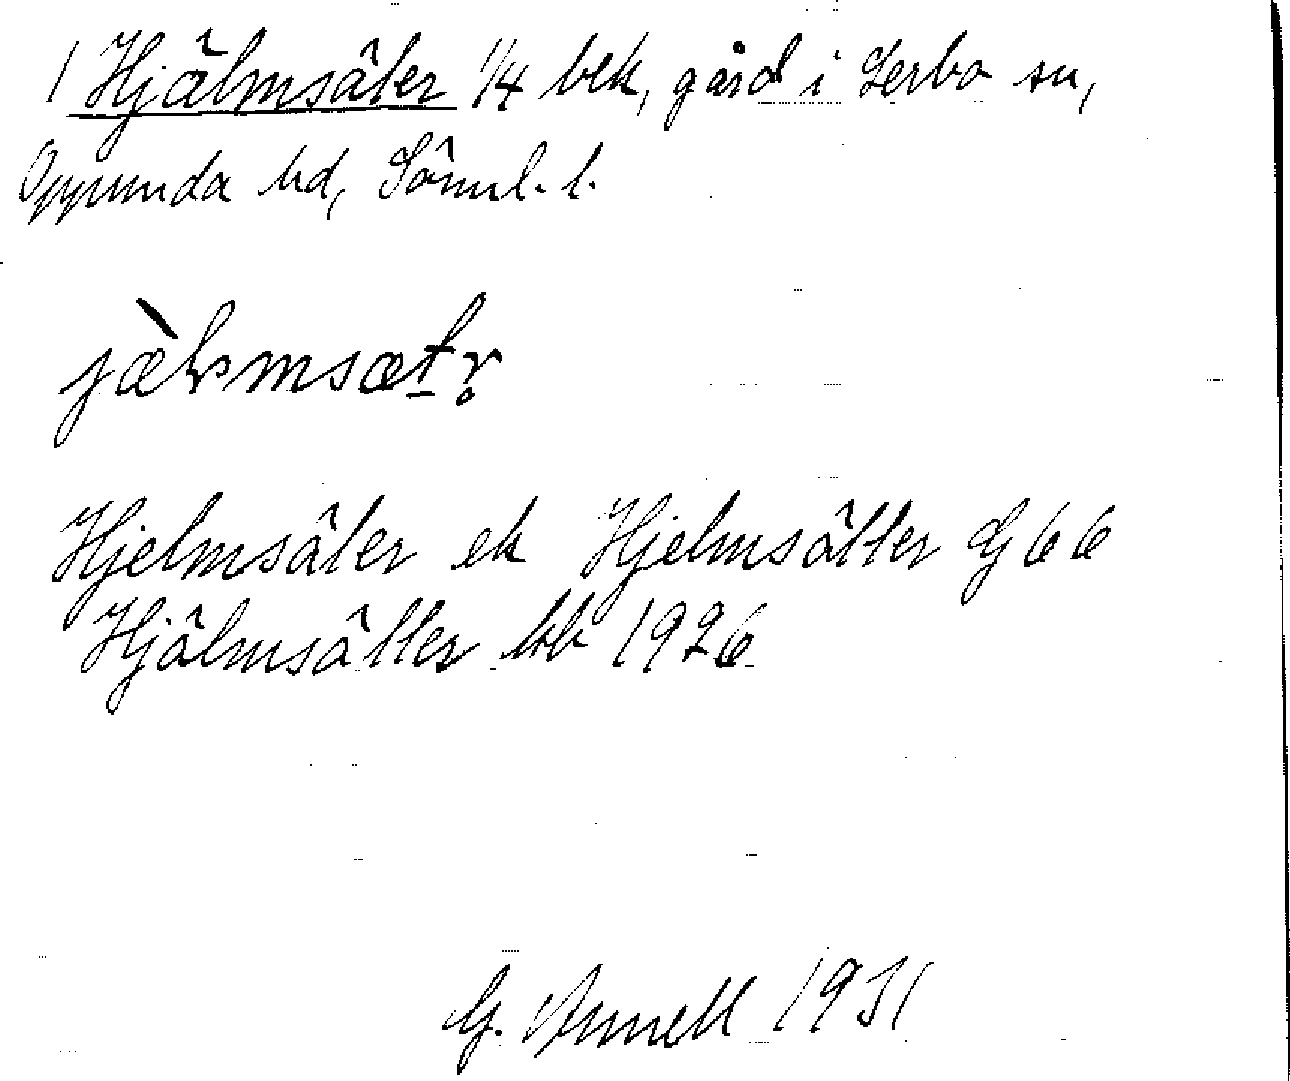 1 Hjälmsäter 1/4 bek, gård i Lerbo sn,
Oppunda hd, Söml. l.
jæ̀lmsætr̥
Hjelmsäter ek Hjelmsätter Gj 66
Hjälmsätter kb 1926
G. Annell 1931